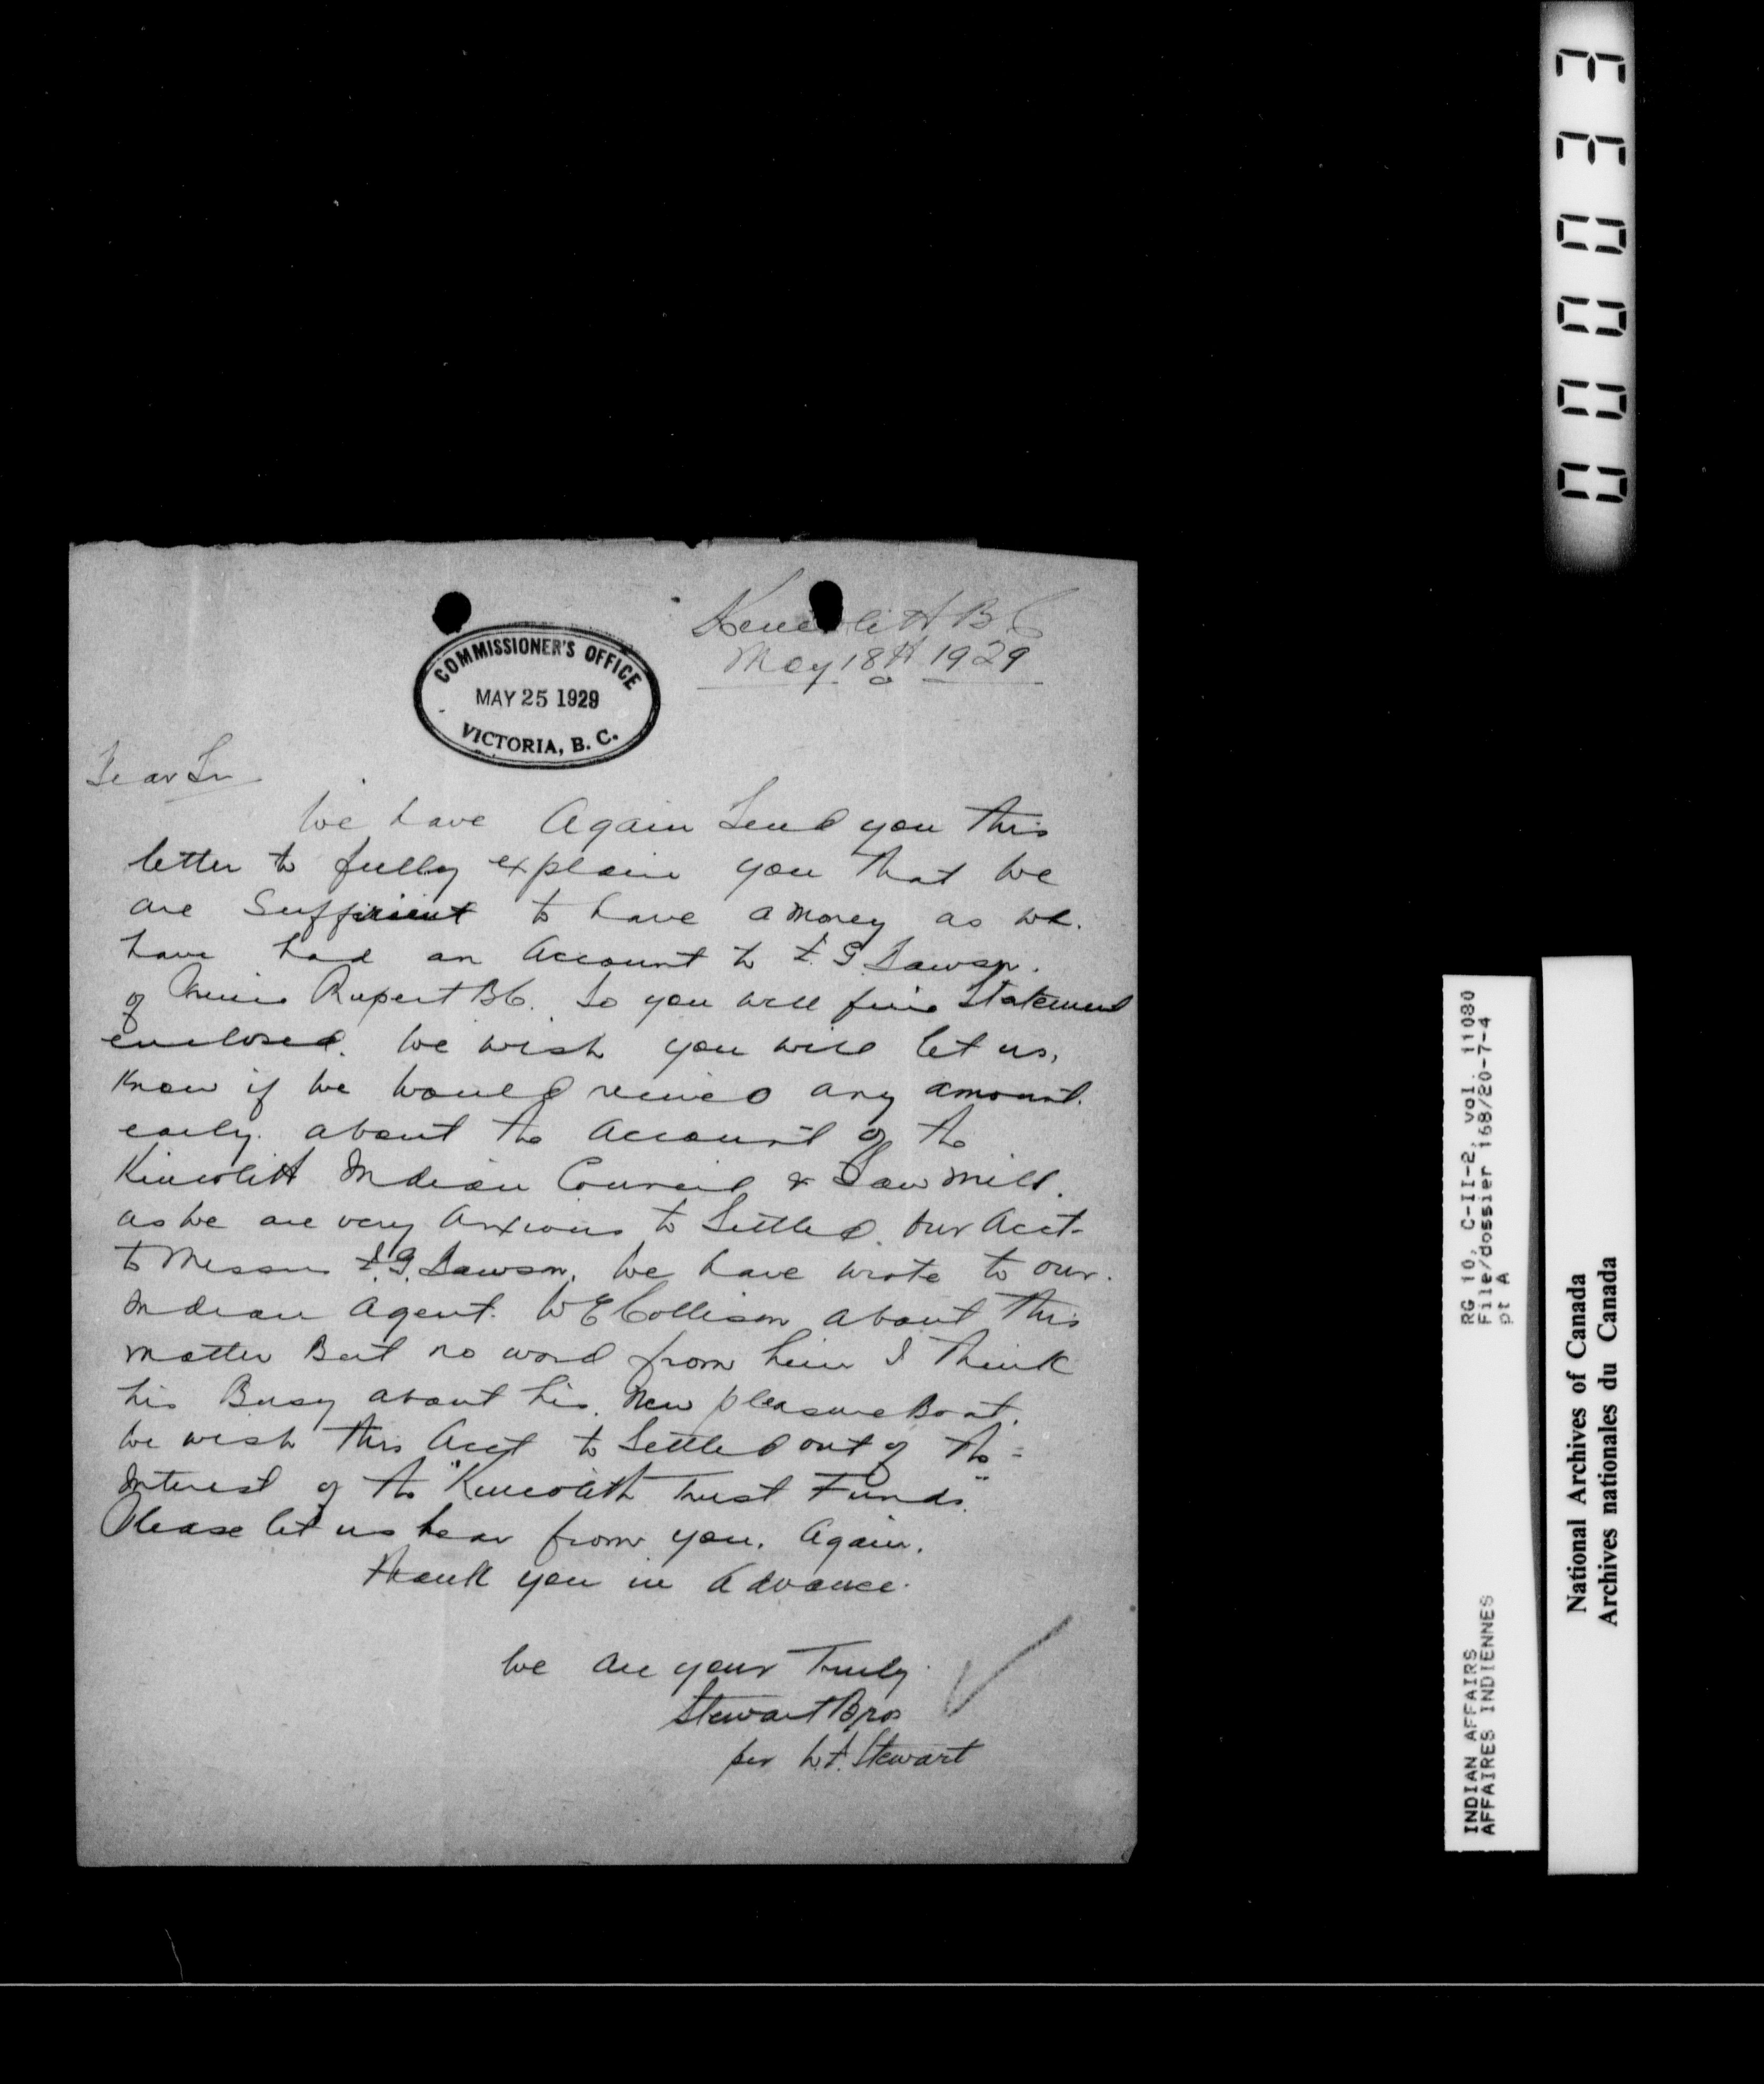 Kincolith B C
May 18th 1929
COMMISSIONER'S OFFICE
MAY 25 1929
VICTORIA, B. C.
Dear Sir
We have Again Send you this
letter to fully explain you that We
are Sufficient to have a money as we.
have had an Account to Dawson.
of Prince Rupert B.C. So you will find Statement
enclosed. We wish you will let us,
Know if we would received any amount.
early. about the Account of the
Kincolith Indian Council & Saw Mill.
as we are very Anxious to Settled. Our Acct.
to Messrs Dawson. We have wrote to our.
Indian Agent. W E Collison about this
matter But no word from him I think
his Busy about his. New pleasure Boat.
We wish this Acct to Settled out of the =
Interest of the "Kincolith Trust Funds."
Please let us hear from you. Again.
Thank you in Advance.
We are your Truly
Stewart Bros
per Stewart
000033
RG 10, C-II-2, vol. 11080
File/dossier 168/20-7-4
pt A
INDIAN AFFAIRS
AFFAIRES INDIENNES
National Archives of Canada
Archives nationales du Canada